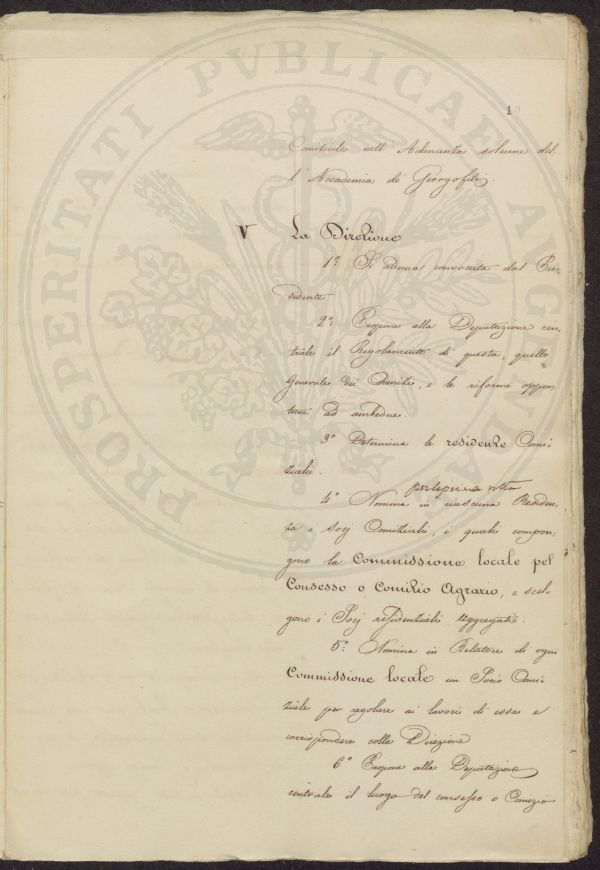 PROSPERITATI PVBLICAE AVGENDAE
10
Comiziale nell' Adunanza solenne del
l' Accademia de Georgofili.
V La Direzione
1º Si aduna convocata dal Pre-
sidente
2º Propone alla Deputazione cen-
trale il Regolamento di questa, quello
Generale dei Comizi, e le riforme oppor-
tune ad ambedue
3º Determina le residenze Comi
ziali.
4º Nomina in ciascuna Residen-
za i socj Comiziali, i quali compon-
gono la Commissione locale pel
Consesso o Comizio Agrario, e scel
gono i Socj residenziali Aggregati.
5º Nomina in Relatore di ogni
Commissione locale un Socio Comi
ziale per regolare ai lavori di essa e
corrispondere colla Direzione
6º Propone alla Deputazione
centrale il luogo del consesso o Comizio